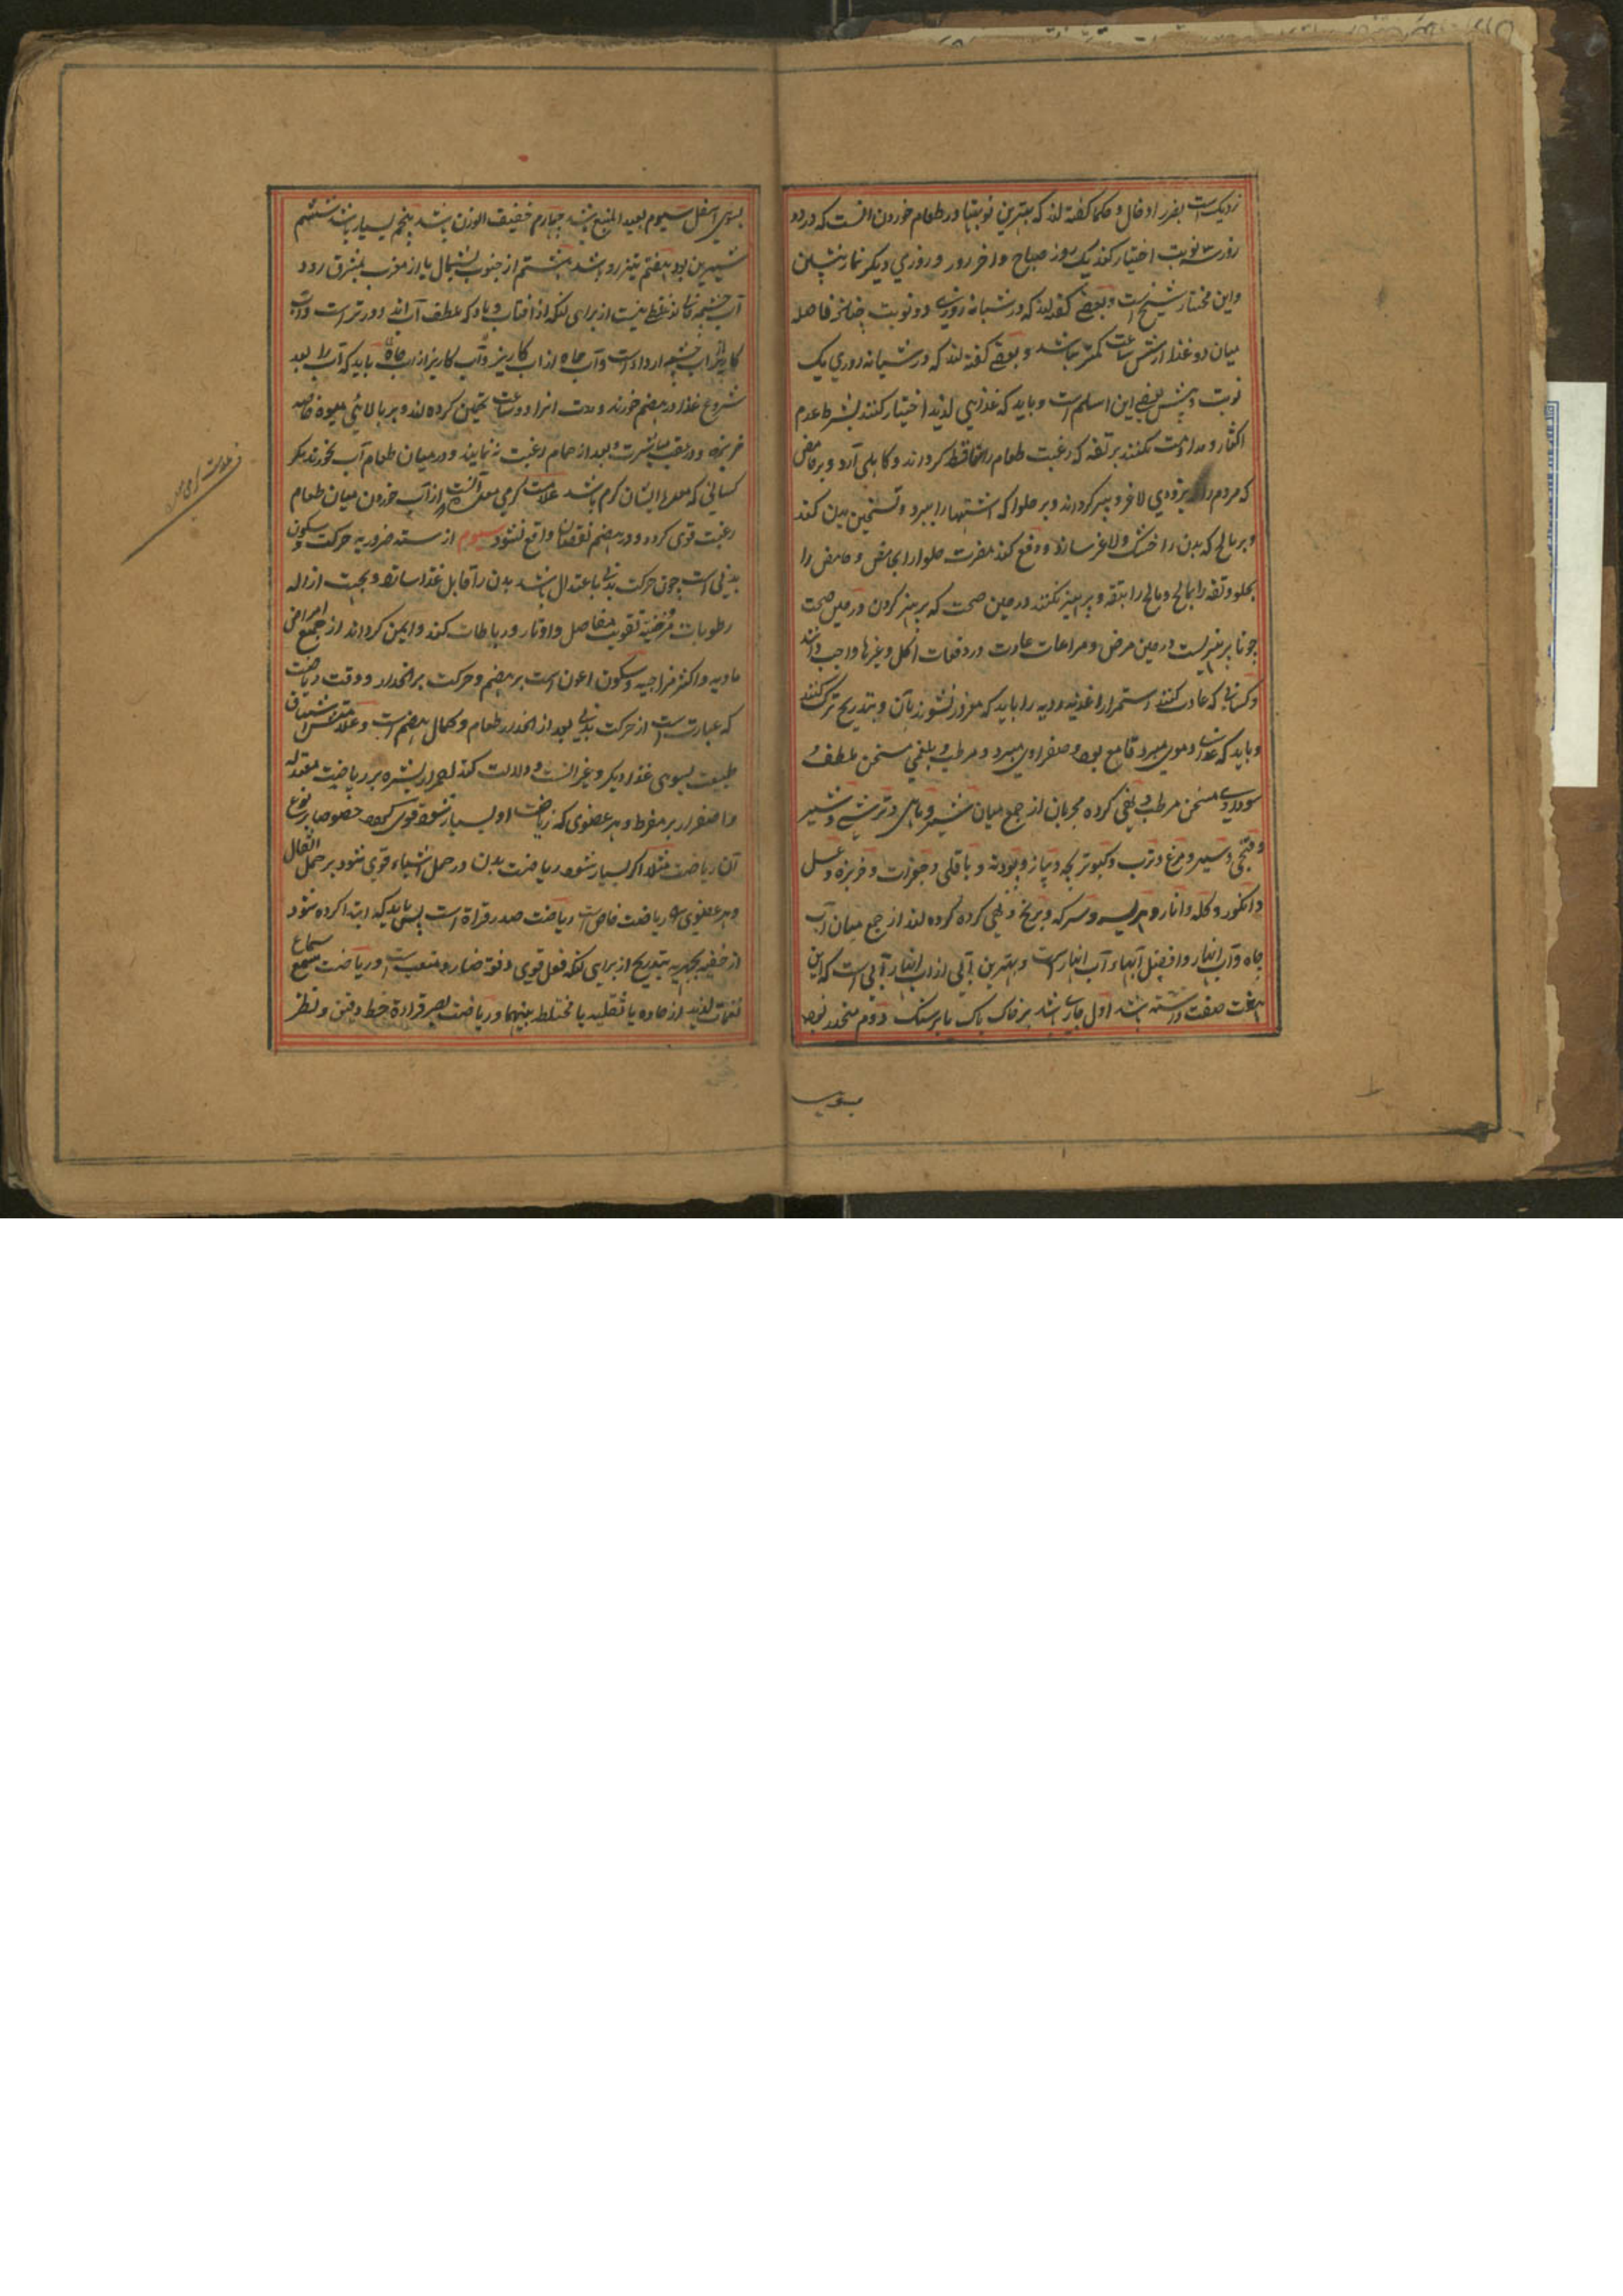 نزدیک است بضرر ادخال و حکما گفته اند که بهترین نوبتها در طعام خوردن آنست که در دو
روز سه نوبت اختیار کند یک روز صباح و آخر روز و روزی دیگر نماز پیشین
و این مختار شیخ است و بعضی گفته اند که در شبانه روزی دو نوبت چنانچه فاصله
میان دو غذا از شش ساعت کمتر نباشد و بعضی گفته اند که در شبانه روزی یک
نوبت و پیش بعضی این اسلم است و باید که غذایی لذیذ اختیار کنند بشرط عدم
اکثار و مداومت نکنند بر تفه که رغبت طعام را ساقط گرداند و کاهلی آرد و بر حامض
که مردم را بزودی لاغر و پیر گرداند و بر حلوا که اشتها را ببرد و تسخین بدن کند
و بر مالح که بدن را خشک و لاغر سازد و دفع کند مضرت حلوا را بحامض و حامض را
بحلو و تفه را بمالح و مالح را بتفه و پرهیز نکنند در حین صحت که پرهیز کردن در حین صحت
چو ناپرهیزیست در حین مرض و مراعات عادت در دفعات اکل و غیرها واجب دانند
و کسانی که عادت کنند استمرار اغذیه ردیه را باید که مغرور نشوند بآن و بتدریج ترک کنند
و باید که غذاء دموی مبرد قامع بود و صفراوی مبرد و مرطب و بلغمی مسخن ملطف و
سوداوی مسخن مرطب و نهی کرده مجربان از جمع میان شیر و ماهی و ترشی و شیر
و سیر و مرغ و ترب و کبوتر بچه و پیاز و پودنه و باقلی و جغرات و خربزه و عسل
و انگور و کله و انار و هریسه و سرکه و برنج و نهی کرده اند از جمع میان آب
چاه و آب انهار و افضل آبهاء آب انهار است و بهترین آبی از آب انهار آبی است که این
هشت صفت داشته باشد اول جاری باشد بر خاک پاک یا بر سنگ دوم منحدر بود
بسوی
بسوی اسفل سیوم بعید المنبع باشد چهارم خفیف الوزن باشد پنجم بسیار باشد ششم
شیرین بود هفتم تیز رو باشد هشتم از جنوب بشمال یا از مغرب بمشرق رود
آب چشمه غلیظ نیست از برای آنکه از آفتاب و باد که ملطف آب اند دورتر است و آب
کاریز از آب چشمه اردا است و آب چاه از آب کاریز و آب کاریز از آب چاه باید که آب را بعد
شروع غذا در هضم خورند و مدت آنرا دو ساعت تخمین کرده اند و بر بالایی میوه خاصه
خربزه و در عقب مباشرت و بعد از حمام رغبت نه نمایند و در میان طعام آب نخورند مگر
کسانی که معده ایشان گرم باشد علامت گرمی معده آنست که از آب خوردن میان طعام
رغبت قوی کردد و در هضم نقصان واقع نشود سیوم از سته ضروریه حرکت و سکون
بدنی است چون حرکت بدنی باعتدال باشد بدن را قابل غذا سازد و بجهت ازاله
رطوبات مرخیه تقویت مفاصل و اوتار و رباطات کند و ایمن گرداند از جمیع امراض
مادیه و اکثر مزاجیه و سکون اعون است بر هضم و حرکت بر انحدار و وقت ریاضت
که عبارت است از حرکت بدنی بعد از انحدار طعام و کمال هضم است و علامتش اشتیاق
طبیعت بسوی غذاء دیگر و غیر آنست و دلالت کند احمرار بشره بر ریاضت معتدله
و اصفرار بر مفرط و هر عضوی که ریاضت او بسیار شود قوی گردد خصوصا بر نوع
آن ریاضت مثلا اگر بسیار شود ریاضت بدن در حمل اشیاء قوی شود بر حمل اثقال
و هر عضوی را ریاضت خاص است ریاضت صدر قراءة است پس باید که ابتدا کرده شود
از خفیه بجهریه بتدریج از برای آنکه فعل قوی دفعة ضار و متعب است و ریاضت سمع سماع
نغمات لذیذ از حاده یا ثقلیه یا مختلط بینهما و ریاضت بصر قراءة خط دقیق و نظر
علامت گرمی معده